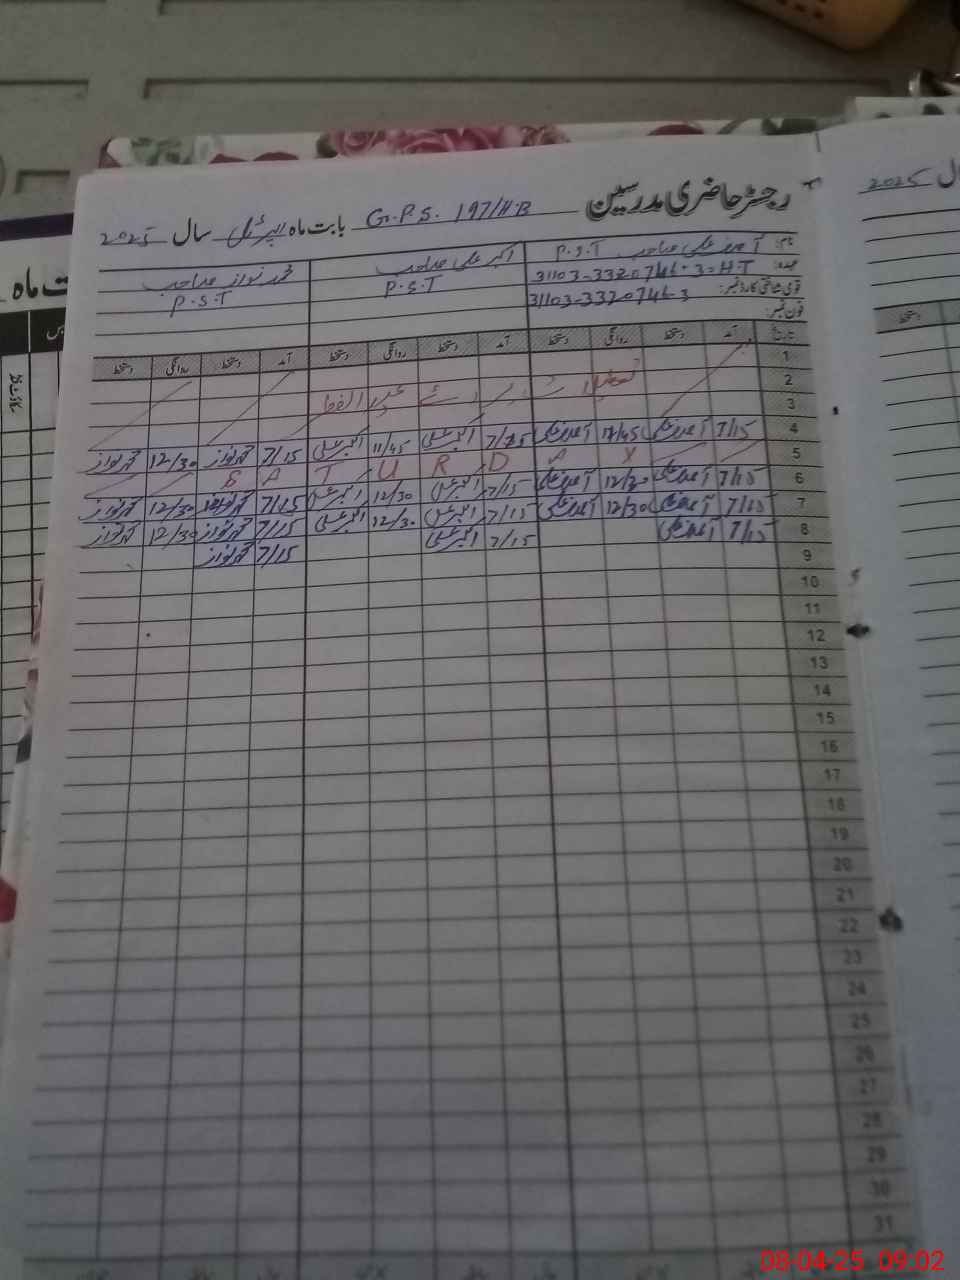 رجسٹر حاضری مدرسین G.P.S. 197/H.B بابت ماہ اپریل سال 2025
نام: آصف علی صاحب P.S.T اکبر علی صاحب محمد نواز صاحب
عہدہ: H.T P.S.T P.S.T
قومی شناختی کارڈ نمبر: 31103-3320746-3
فون نمبر:
تاریخ آمد دستخط روانگی دستخط آمد دستخط روانگی دستخط آمد دستخط روانگی دستخط
1
2 تعطیل عید الفطر
3
4 7/15 12/45 7/15 اکبر علی 11/45 اکبر علی 7/15 محمد نواز 12/30 محمد نواز
5 S A T U R D A Y
6 7/15 12/30 7/15 اکبر علی 12/30 اکبر علی 7/15 محمد نواز 12/30 محمد نواز
7 7/15 12/30 7/15 اکبر علی 12/30 اکبر علی 7/15 محمد نواز 12/30 محمد نواز
8 7/15 7/15 اکبر علی 7/15 محمد نواز
9
10
11
12
13
14
15
16
17
18
19
20
21
22
23
24
25
26
27
28
29
30
31
2025
ت ماہ
دستخط
08-04-25 09:02